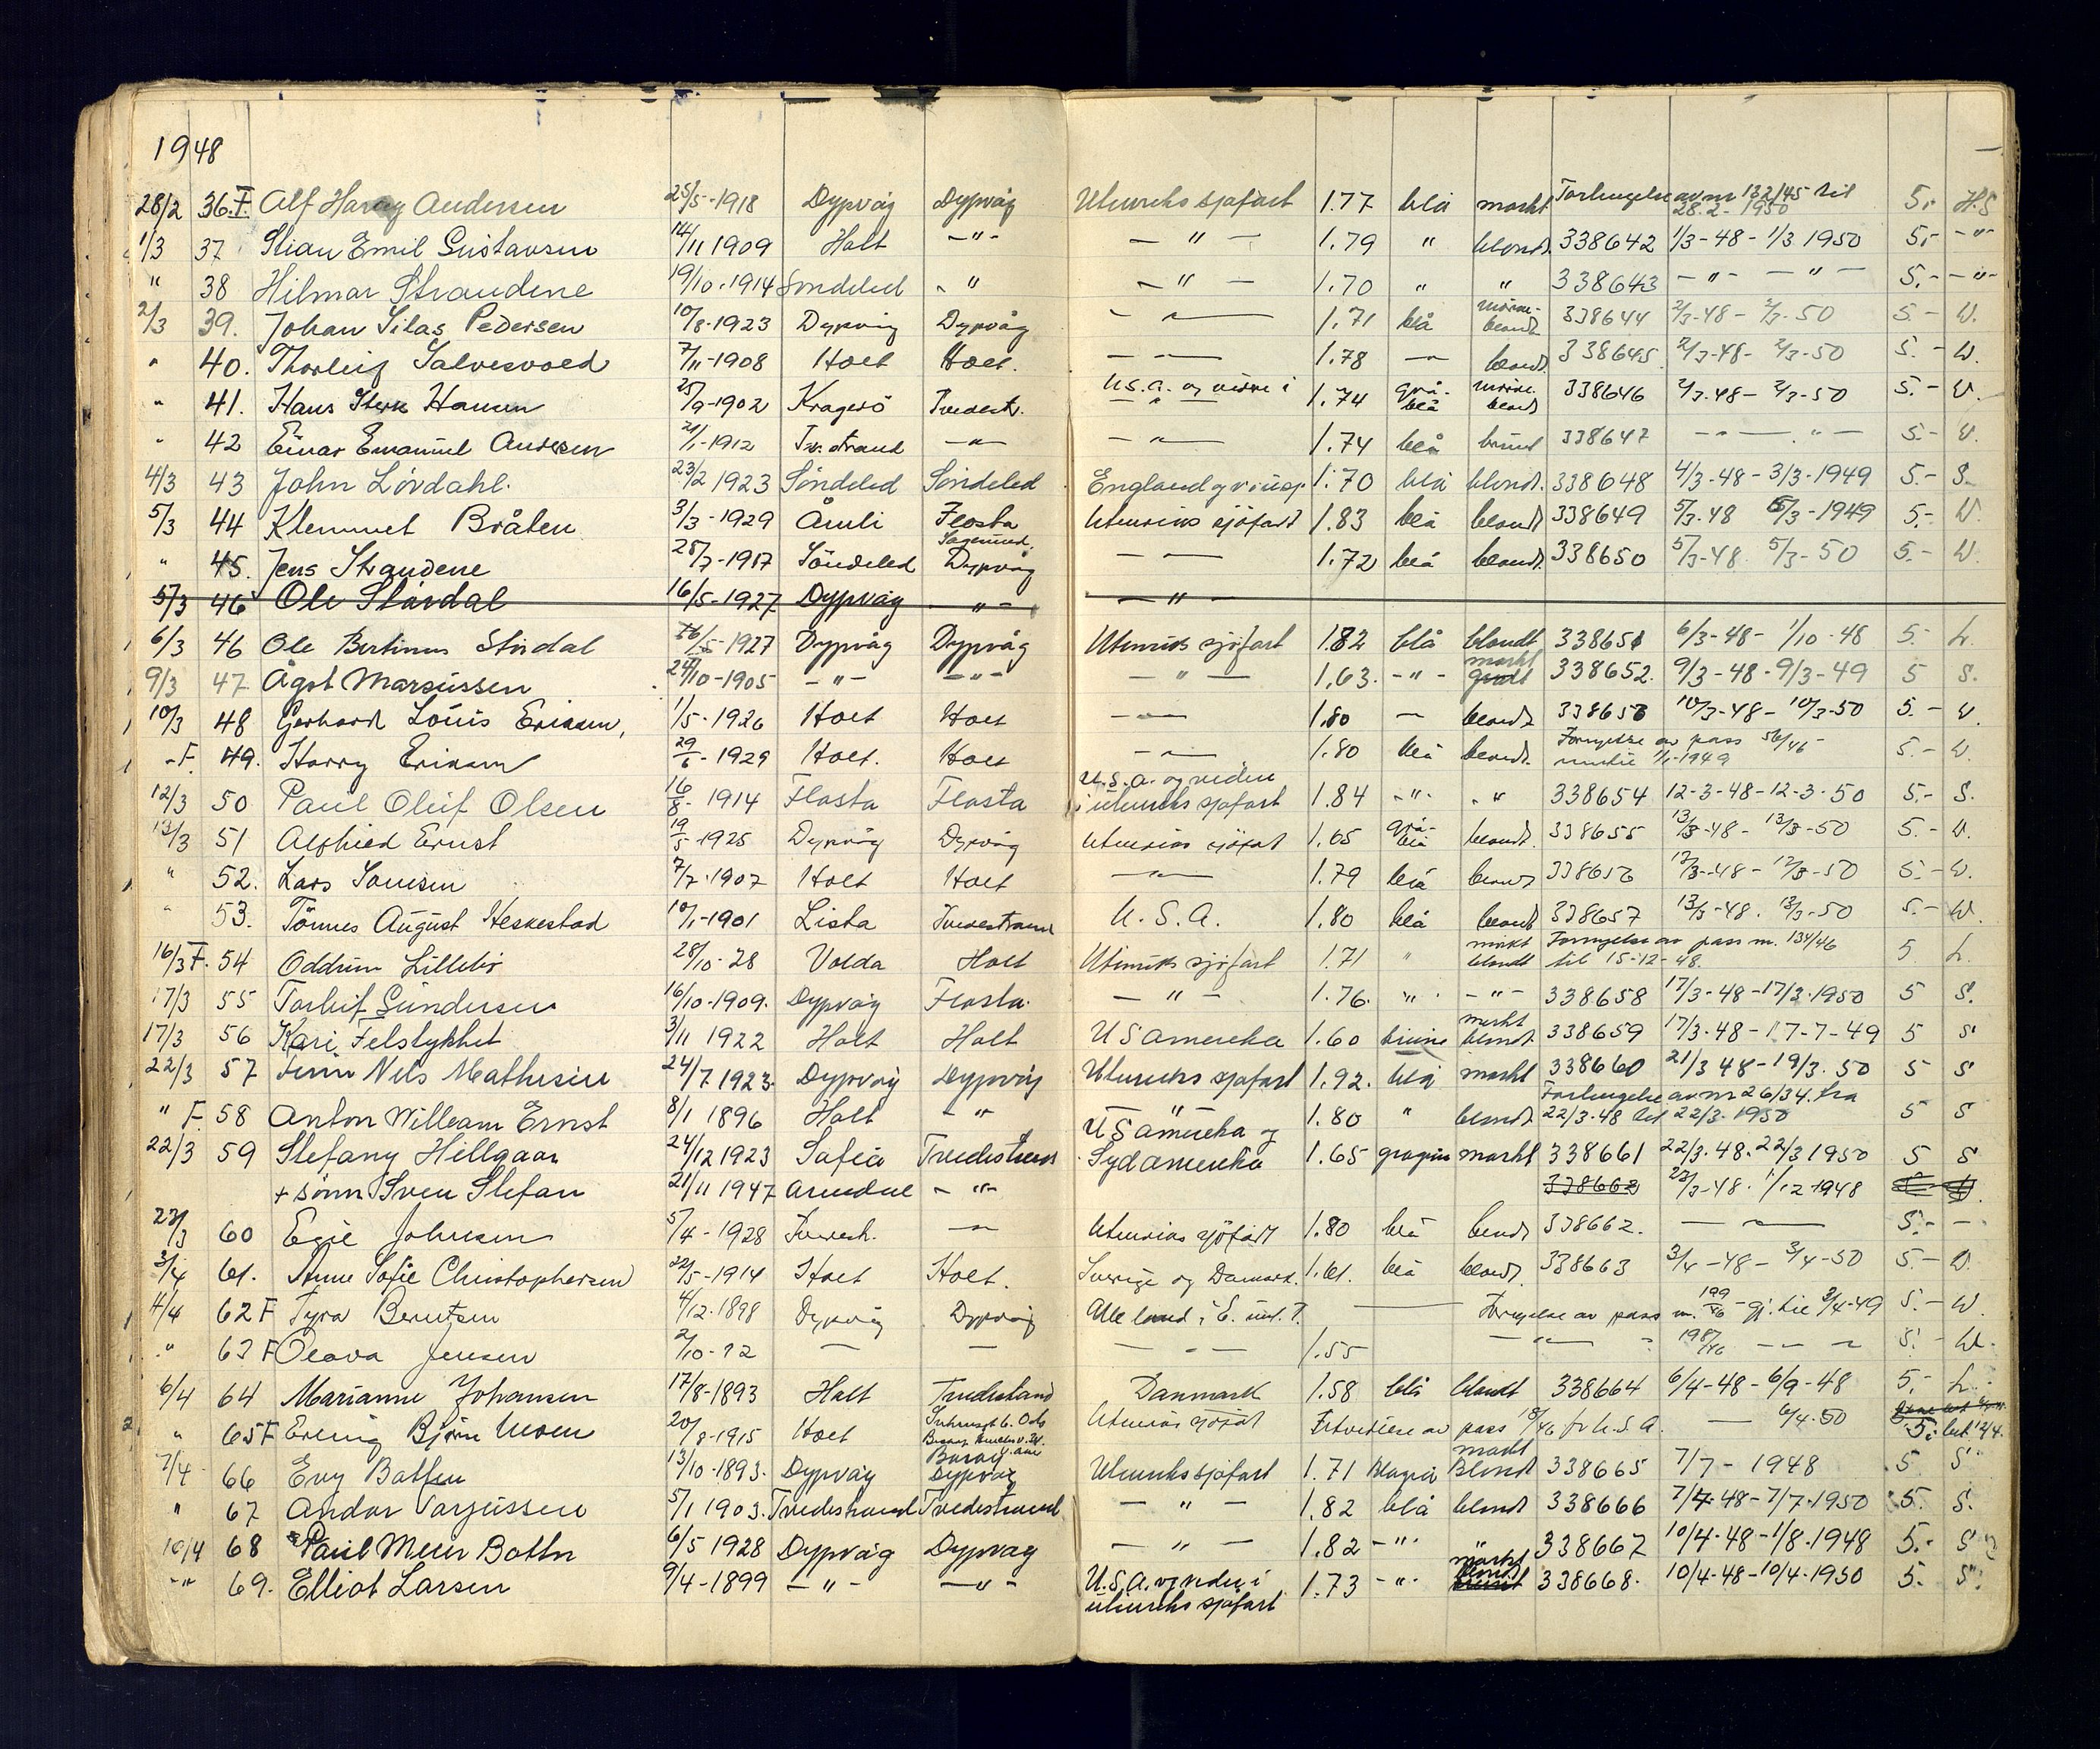 1948
28/2 36.F. Alf Harry Andersen 25/5-1918 Dypvåg Dypvåg Utenriks sjøfart 1.77 blå mørkt Forlengelse av nr 132/45 til 28.2-1950 5,- H.S
1/3 37 Stian Emil Gustavsen 14/11 1909 Holt -"- - " - 1.79 " blond. 338642 1/3-48-1/3 1950 5,- -"-
" 38 Hilmar Strandene 19/10.1914 Søndeled - " - " - 1.70 " " 338643 -"- -"- 5.- -"-
2/3 39. Johan Silas Pedersen 10/8-1923 Dypvåg Dypvåg - " - 1.71 blå blond 338644 2/3-48- 2/3-50 5.- W.
" 40. Thorleif Salvesvold 7/11-1908 Holt Holt. - " - 1.78 - " - blond. 338645 2/3-48- 2/3-50 5.- W.
" 41. Hans Hansen 25/9-1902 Kragerö Tvedestr. U.S.A. og videre i - " - 1.74 grå-blå blond 338646 2/3-48- 2/3-50 5.- W.
" 42 Einar Emanuel Andersen 21/1-1912 Tv.strand -"- - " - 1.74 blå brunt 338647 - " - - " - 5.- W.
4/3 43 John Lövdahl. 23/2 1923 Söndeled Söndeled England og 1.70 blå blond. 338648 4/3-48-3/3-1949 5.- S.
5/3 44 Klemmet Bråten 3/3-1929 Åmli Flosta Utenriks sjöfart 1.83 blå blond 338649 5/3-48 5/3-1949 5.- W.
" 45. Jens Strandene 28/7-1917 Söndeled Sagesund. Dypvåg - " - 1.72 blå blond. 338650 5/3-48 5/3-50 5.- W.
5/3 46 Ole Stördal 16/5-1927 Dypvåg - " - - " -
6/3 46 Ole Bertinus Stördal 16/5-1927 Dypvåg Dypvåg Utenriks sjöfart 1.82 blå blondt 338651 6/3-48- 1/10-48 5.- L.
9/3 47 Ågot Marcussen 24/10-1905 -"- -"- - " - 1.63. -"- mørkt 338652. 9/3-48-9/3-49 5 S.
10/3 48 Gerhard Louis Eriksen, 1/5-1926 Holt Holt - " - 1.80 - " - blond. 338653 10/3-48- 10/3-50 5.- W.
-F. 49. Harry Eriksen 29/6-1929 Holt. Holt - " - 1.80 blå blond. Fornyelse av pass 56/46 - 1/1-1949 5.- W.
12/3 50 Paul Oluf Olsen 16/8-1914 Flosta Flosta U.S.A. og videre i utenriks sjøfart 1.84 -"- -"- 338654 12-3-48-12-3-50 5.- S.
13/3 51 Alfhild Ernst 19/5-1925 Dypvåg Dypvåg Utenriks sjöfart 1.65 grå-blå blondt. 338655 13/3-48- 13/3-50 5.- W.
" 52. Lars Somsen 7/7-1907 Holt Holt - " - 1.79 blå blond 338656 13/3-48- 13/3-50 5.- W.
" 53. Tönnes August Heskestad 10/1-1901 Lista Tvedestrand U.S.A. 1.80 blå blond 338657 13/3-48. 13/3-50 5.- W.
16/3 F. 54 Oddrun Lillebö 28/10-28 Volda Holt Utenriks sjöfart 1.71 " mørkt blondt Fornyelse av pass nr. 134/46 til 15-12-48. 5 L.
17/3 55 Torleif Gundersen 16/10-1909. Dypvåg Flosta. - " - 1.76. " -"- 338658 17/3-48-17/3-1950 5 S.
17/3 56 Kari Felstykket 3/11 1922 Holt Holt U S Amerika 1.60 brune mørkt blondt. 338659 17/3-48-17-7-49 5 S
22/3 57 Finn Nils Mathisen 24/7 1923. Dypvåg Dypvåg Utenriks sjøfart 1.92. blå mørkt 338660 21/3 48-19/3.50 5 S
" F. 58 Anton William Ernst 8/1 1896 Holt - " - " - 1.80 " blond. Forlengelse av nr 26/34. fra 22/3.48 til 22/3.1950 5 S
22/3 59 Stefany Hillgaar 24/12 1923 Sofia Tvedestrand U S Amerika og Sydamerika 1.65 grågrøn mørkt 338661 22/3.48.22/3 1950 5 S
+ sönn Sven Stefan 21/11 1947 Arendal - " - 338662 23/3-48. 1/12 1948
23/3 60 Egil Johnsen 5/4-1928 Tvedestr. - " - Utenriks sjöfart 1.80 blå blond 338662. - " - 5.- -
3/4 61. Anne Sofie Christophersen 22/5-1914 Holt Holt. Sverige og Danmark. 1.61. blå blond. 338663 3/4-48- 3/4-50 5.- W.
4/4 62 F Tyra Berntsen 4/12.1898 Dypvåg Dypvåg Alle land i E. unt. T. Fornyelse av pass nr. 199/46 - gj. til 3/4-49 5.- W.
" 63 F Olava Jensen 2/10-12 - - - " - 1.55 - " - 198/46 - " - 5.- W.
6/4 64 Marianne Johansen 17/8-1893 Holt Tvedestrand Danmark 1.58 blå blondt 338664 6/4-48-6/9-48 5.- L.
" 65 F Erling Björn Moen 20/8-1915 Holt Utenriks sjöfart Utvidelse av pass 18/46 for U.S.A. - 6/4-50 5,- bet. 12/4.
7/4 66 Evy Botten 13/10-1893. Dypvåg Dypvåg Utenriks sjøfart 1.71 Blågrå mørkt Blond 338665 7/7-1948 5 S
" 67 Andor Torjussen 5/1 1903. Tvedestrand Tvedestrand - " - 1.82 blå blond 338666 7/4-48-7/7-1950 5. S.
10/4 68 Paul Meier Bottn 6/5 1928 Dypvåg Dypvåg - " - 1.82 -"- " 338667 10/4-48-1/8.1948 5.- S
-"- 69. Elliot Larsen 9/4-1899 -"- -"- U.S.A. og videre i utenriks sjøfart 1.73 -"- mørkt blond 338668. 10/4-48-10/4-1950 5. S.